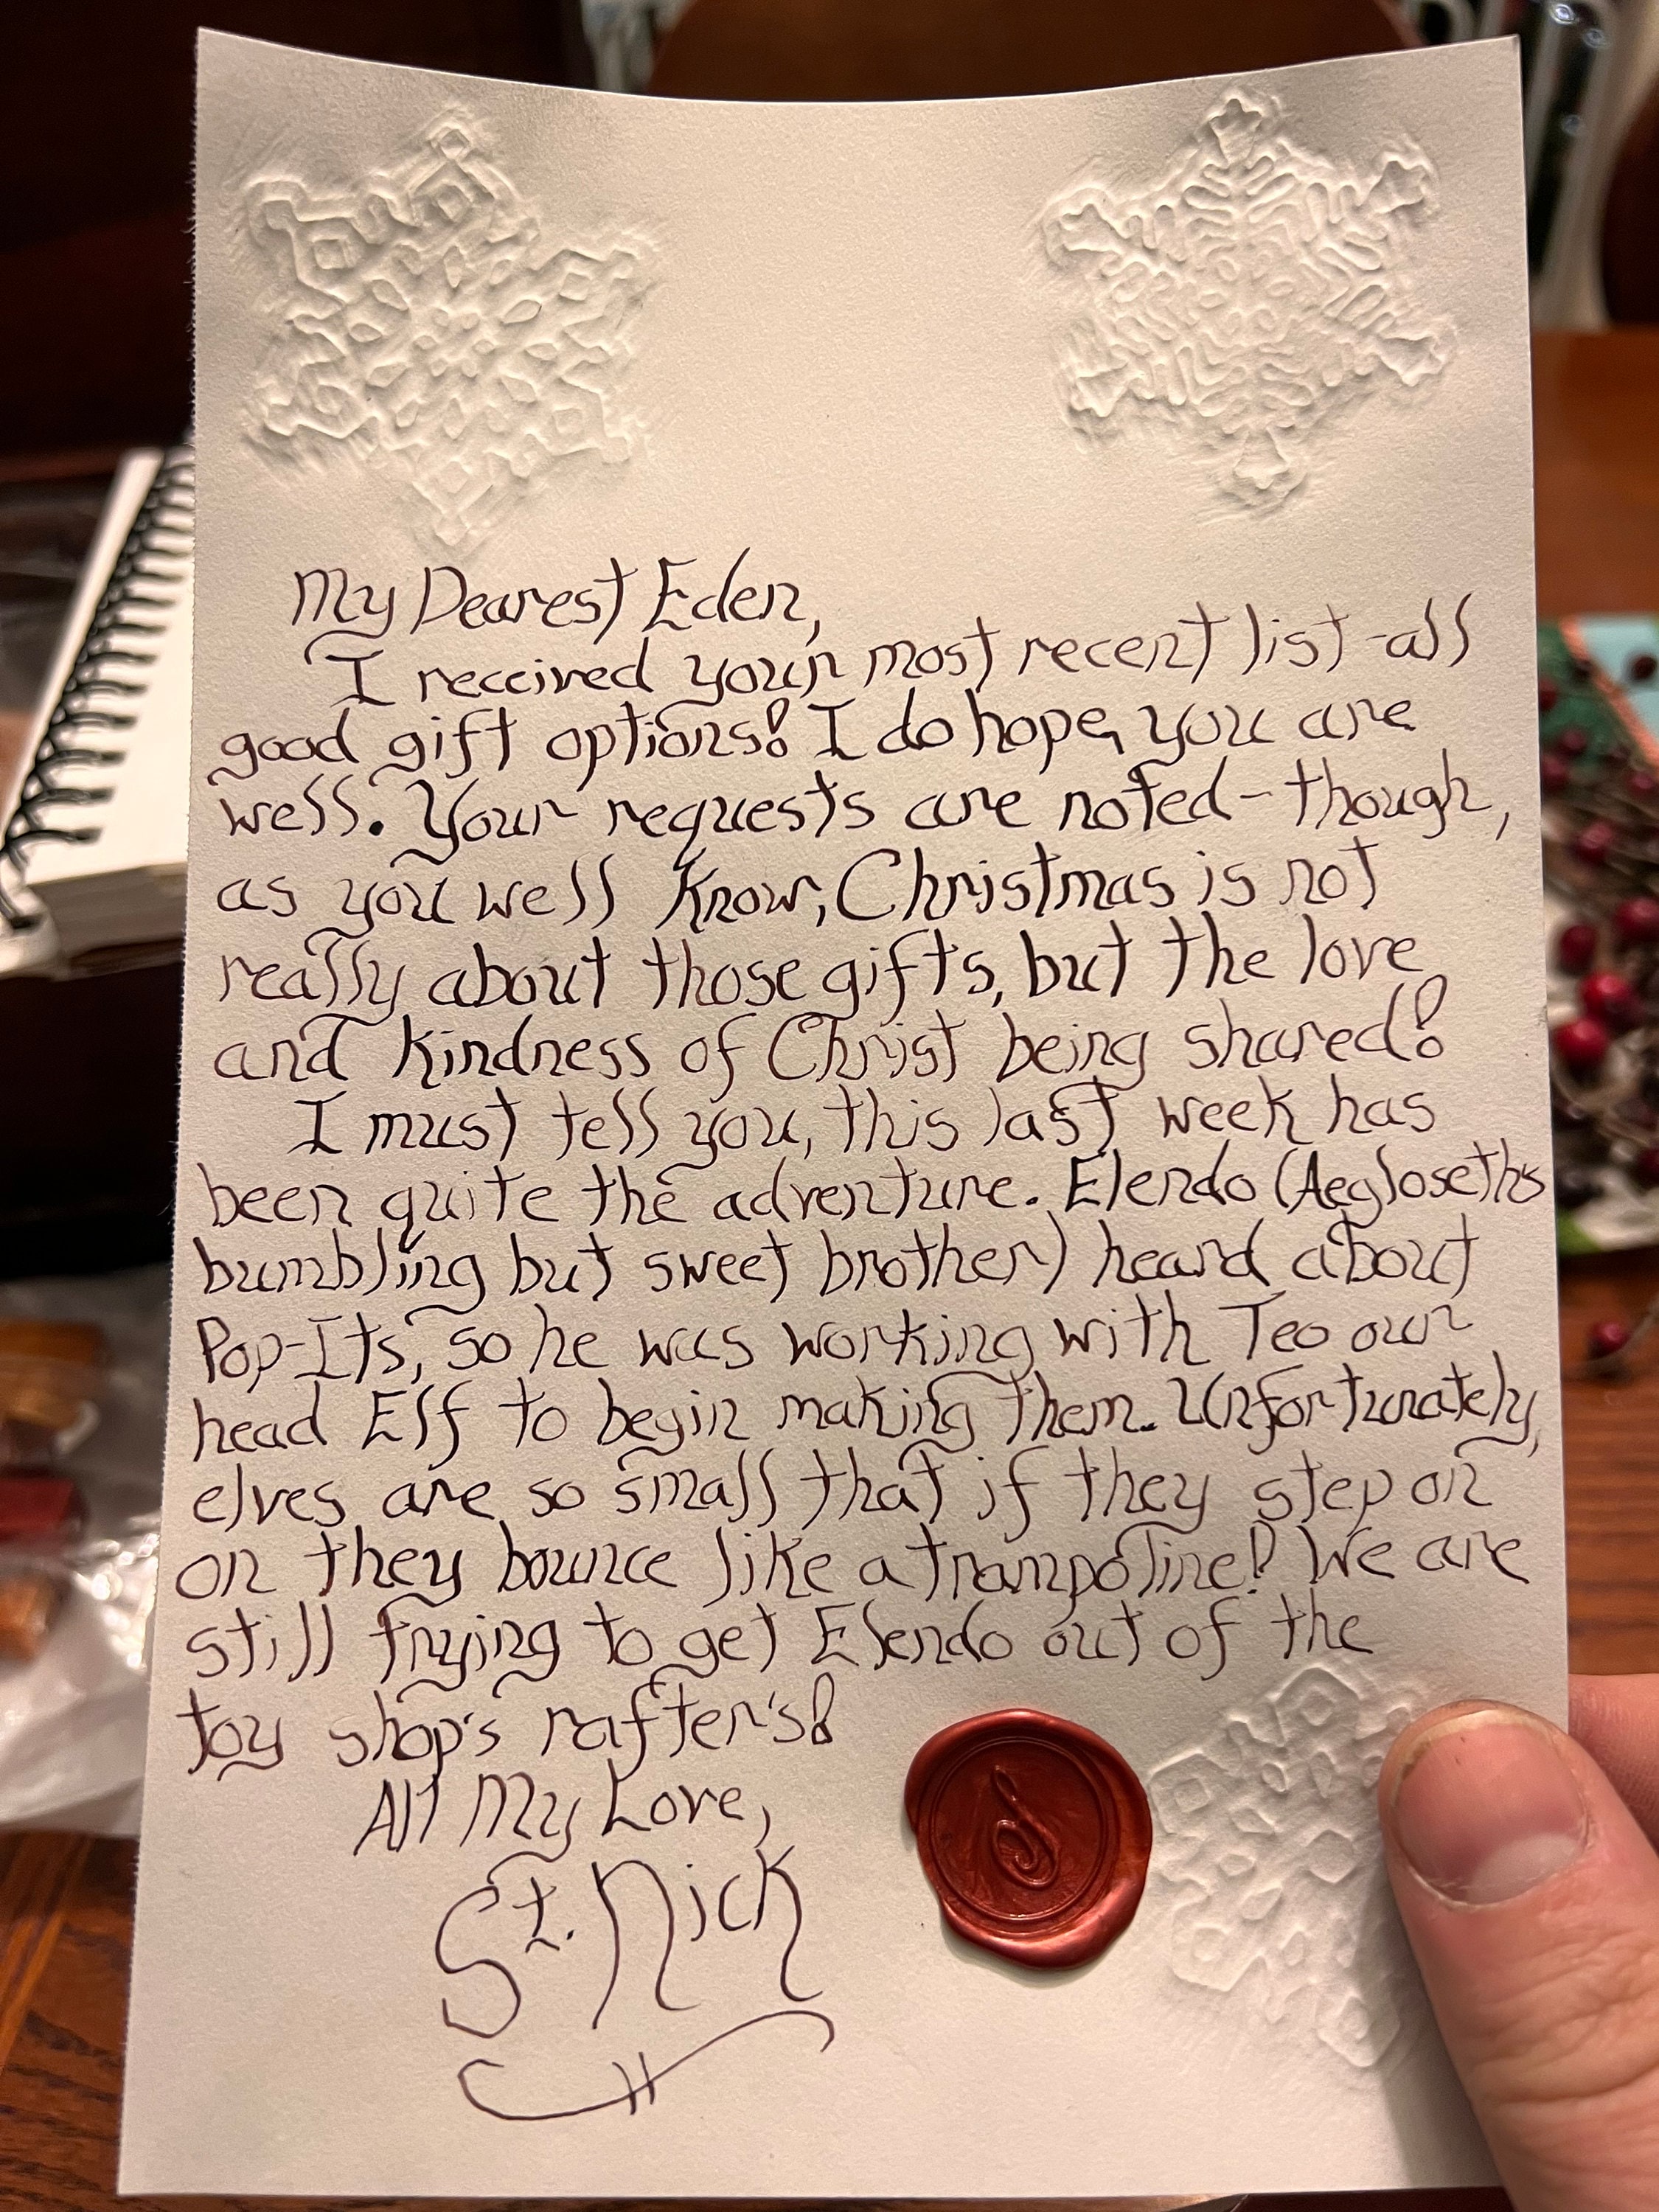 My Dearest Eden,
I received your most recent list - all
good gift options! I do hope, you are
well. Your requests are noted - though,
as you well know, Christmas is not
really about those gifts, but the love
and kindness of Christ being shared!
I must tell you, this last week has
been quite the adventure. Elendo (Aegloseth's
bumbling but sweet brother) heard about
Pop-Its, so he was working with Teo our
head Elf to begin making them. Unfortunately,
elves are so small that if they step on
on they bounce like a trampoline! We are
still trying to get Elendo out of the
toy shop's rafter's!
All My Love,
St. Nick